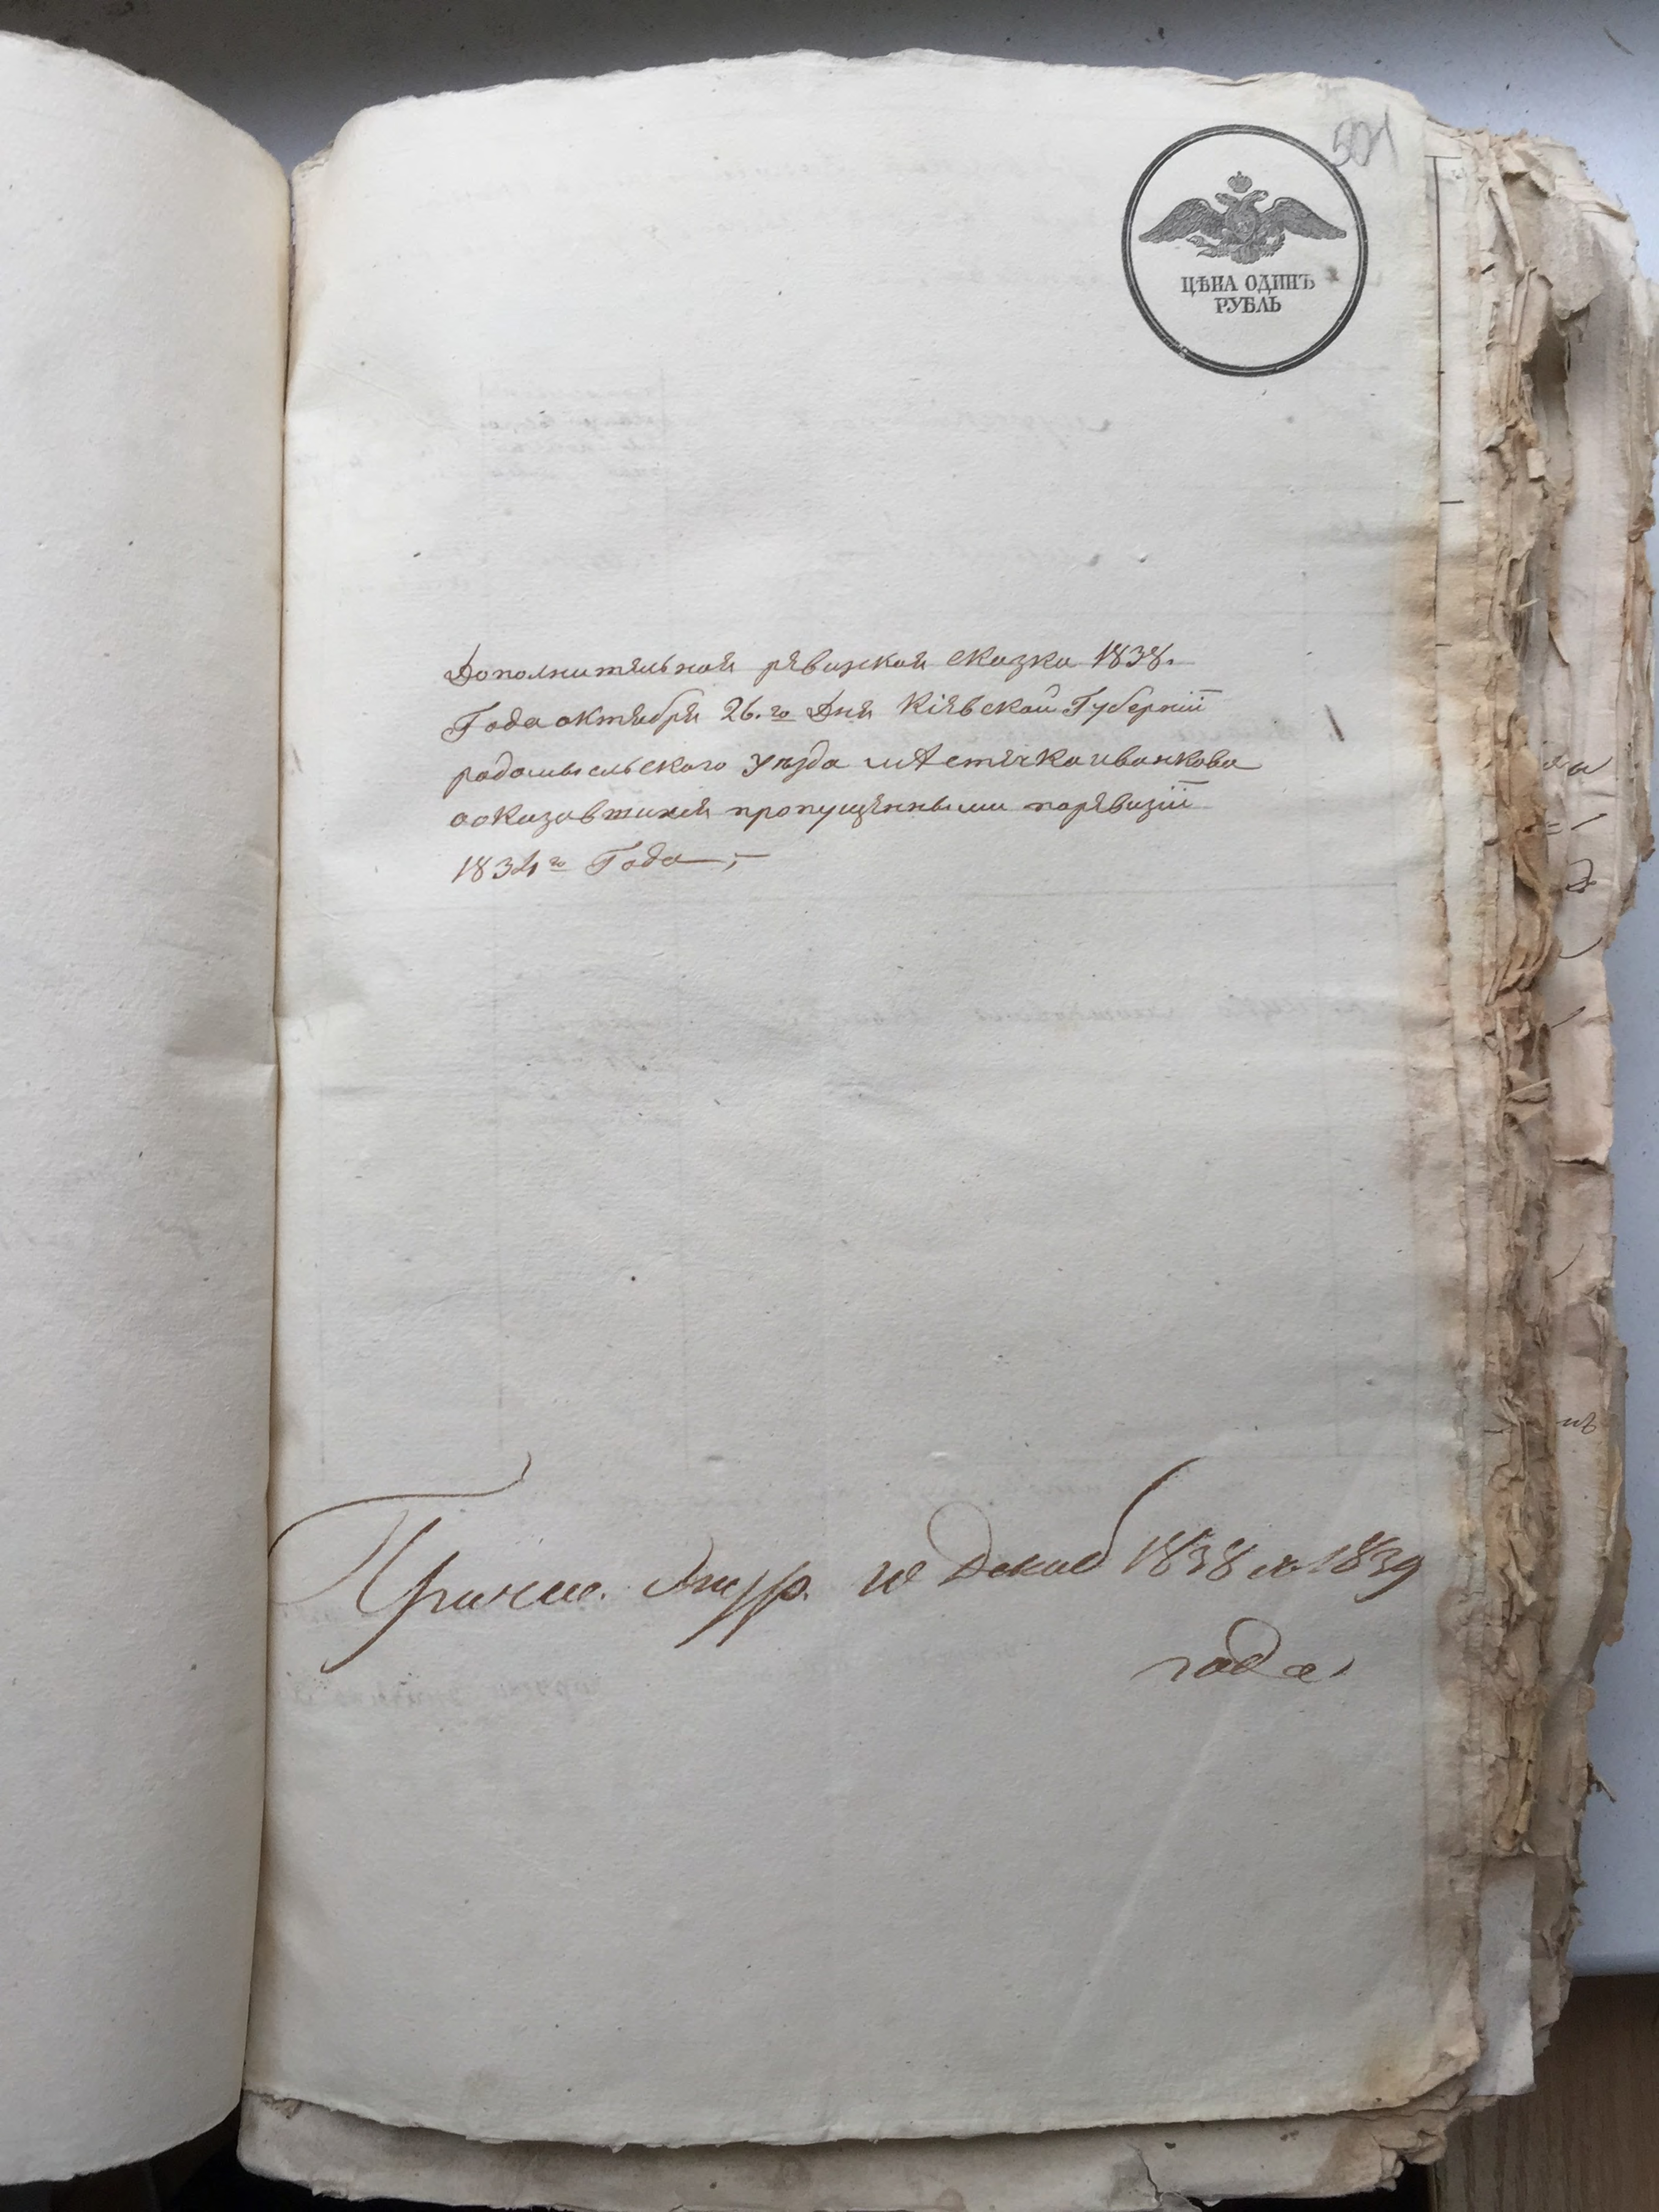 501
ЦѢНА ОДИНЪ
РУБЛЬ
Дополнительная ревизкая сказка 1838.
Года октября 26.го Дня Кіевской Губерніи
радомысльского уѣзда мѣстечка иванкова
оказавшихся пропущенными поревизіи
1834го Года
1838 1839
года